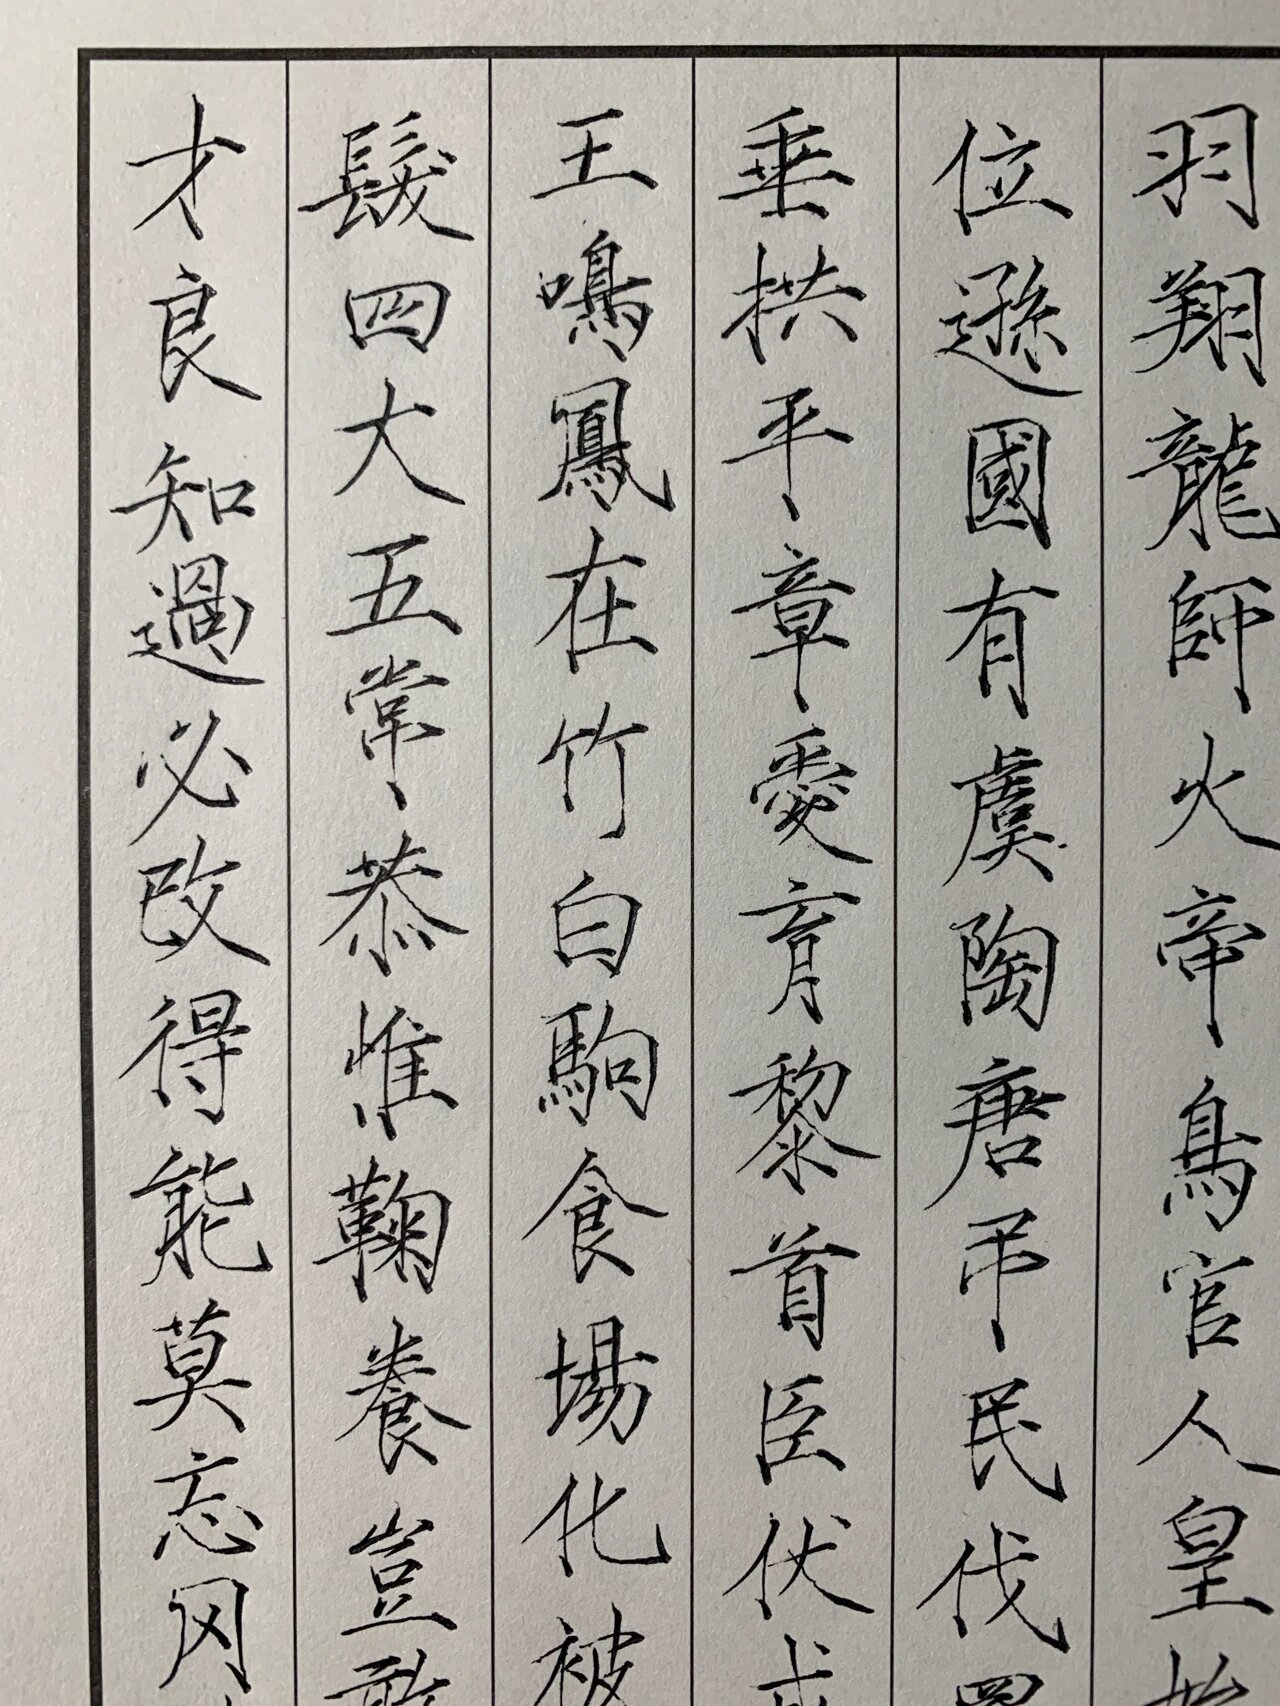 羽翔龍師火帝鳥官人皇始
位遜國有虞陶唐弔民伐罪
垂拱平章愛育黎首臣伏戎
王鳴鳳在竹白駒食場化被
髮四大五常恭惟鞠養豈敢
才良知過必改得能莫忘罔